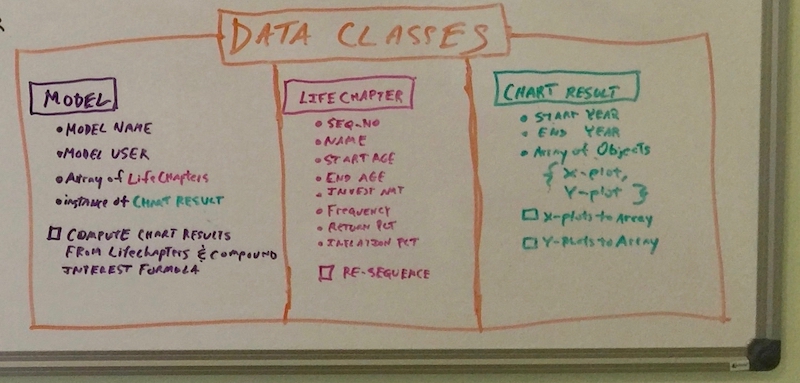 DATA CLASSES
MODEL
• MODEL NAME
• MODEL USER
• Array of LifeChapters
• instance of CHART RESULT
□ COMPUTE CHART RESULTS
FROM Lifechapters & COMPOUND
INTEREST FORMULA
LIFECHAPTER
• SEQ-NO
• NAME
• START AGE
• END AGE
• INVEST AMT
• Frequency
• RETURN PCT
• INFLATION PCT
□ RE-SEQUENCE
CHART RESULT
• START YEAR
• END YEAR
• Array of Objects
{ X-plot,
Y-plot }
□ X-plots to Array
□ Y-Plots to Array